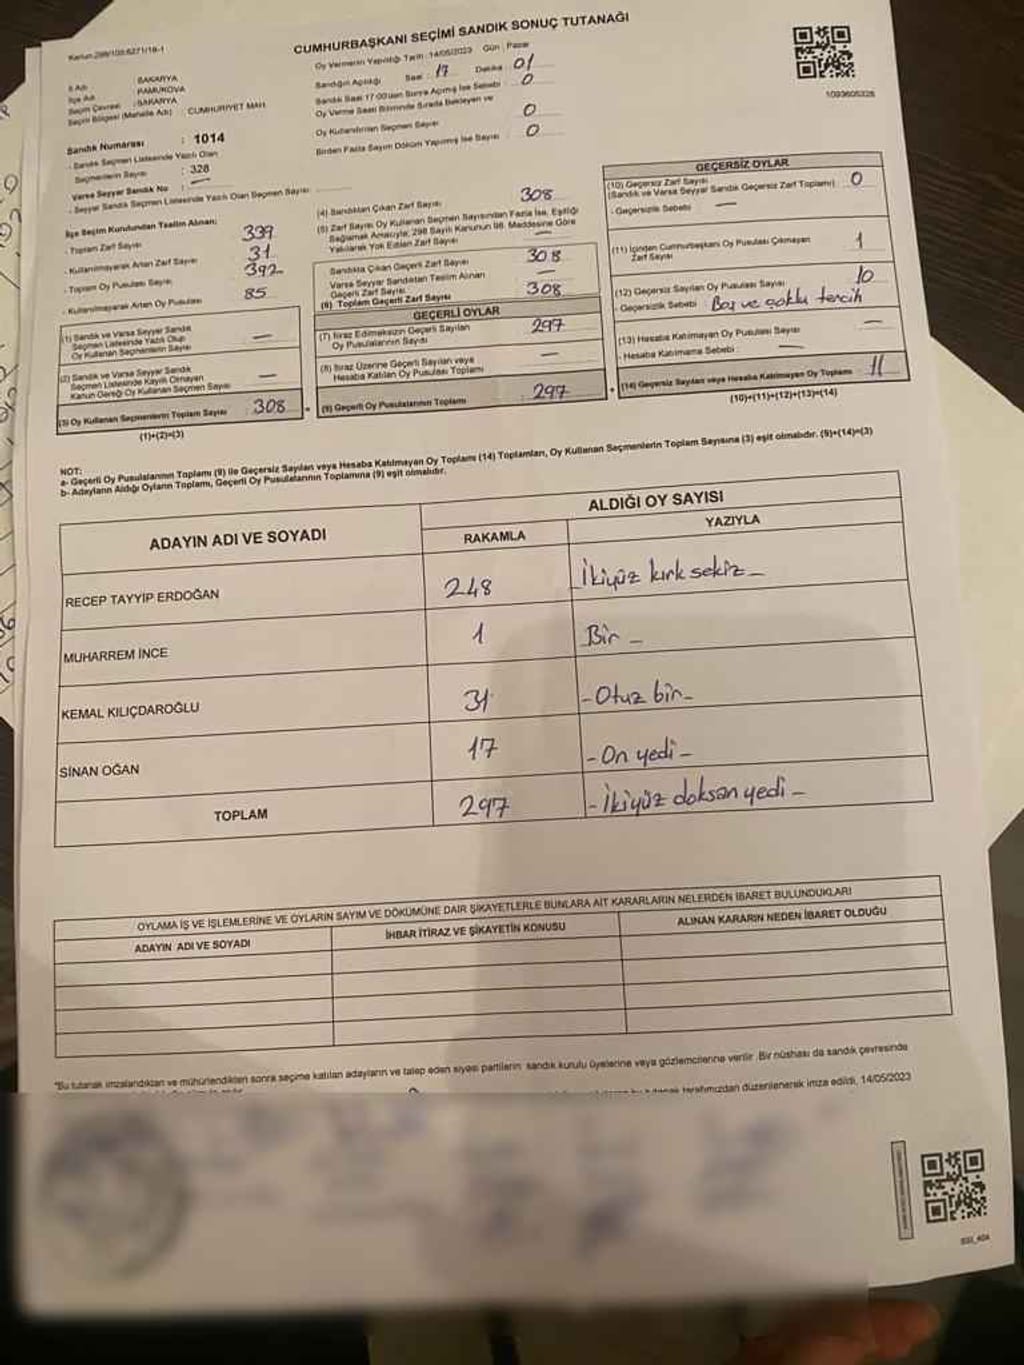 Kanun:298/105:6271/18-1
CUMHURBAŞKANI SEÇİMİ SANDIK SONUÇ TUTANAĞI
Oy Vermenin Yapıldığı Tarih : 14/05/2023 Gün : Pazar
Sandığın Açıldığı Saat : 17 Dakika : 01
Sandık Saat 17:00'den Sonra Açılmış İse Sebebi : 0
Oy Verme Saati Bitiminde Sırada Bekleyen ve
Oy Kullandırılan Seçmen Sayısı 0
Birden Fazla Sayım Döküm Yapılmış İse Sayısı : 0
İl Adı : SAKARYA
İlçe Adı : PAMUKOVA
Seçim Çevresi : SAKARYA
Seçim Bölgesi (Mahalle Adı) : CUMHURİYET MAH.
Sandık Numarası : 1014
- Sandık Seçmen Listesinde Yazılı Olan
Seçmenlerin Sayısı : 328
Varsa Seyyar Sandık No : —
- Seyyar Sandık Seçmen Listesinde Yazılı Olan Seçmen Sayısı
İlçe Seçim Kurulundan Teslim Alınan;
- Toplam Zarf Sayısı 339
- Kullanılmayarak Artan Zarf Sayısı 31
- Toplam Oy Pusulası Sayısı 392
- Kullanılmayarak Artan Oy Pusulası 85
(1) Sandık ve Varsa Seyyar Sandık
Seçmen Listesinde Yazılı Olup
Oy Kullanan Seçmenlerin Sayısı —
(2) Sandık ve Varsa Seyyar Sandık
Seçmen Listesinde Kayıtlı Olmayan
Kanun Gereği Oy Kullanan Seçmen Sayısı —
(3) Oy Kullanan Seçmenlerin Toplam Sayısı : 308
(1)+(2)=(3)
(4) Sandıktan Çıkan Zarf Sayısı 308
(5) Zarf Sayısı Oy Kullanan Seçmen Sayısından Fazla İse, Eşitliği
Sağlamak Amacıyla; 298 Sayılı Kanunun 98. Maddesine Göre
Yakılarak Yok Edilen Zarf Sayısı —
Sandıkta Çıkan Geçerli Zarf Sayısı 308
Varsa Seyyar Sandıktan Teslim Alınan
Geçerli Zarf Sayısı —
(6) Toplam Geçerli Zarf Sayısı 308
GEÇERLİ OYLAR
(7) İtiraz Edilmeksizin Geçerli Sayılan
Oy Pusulasının Sayısı 297
(8) İtiraz Üzerine Geçerli Sayılan veya
Hesaba Katılan Oy Pusulası Toplamı —
(9) Geçerli Oy Pusulalarının Toplamı : 297
1093605328
GEÇERSİZ OYLAR
(10) Geçersiz Zarf Sayısı
(Sandık ve Varsa Seyyar Sandık Geçersiz Zarf Toplamı) 0
- Geçersizlik Sebebi : —
(11) İçinden Cumhurbaşkanı Oy Pusulası Çıkmayan
Zarf Sayısı 1
(12) Geçersiz Sayılan Oy Pusulası Sayısı 10
- Geçersizlik Sebebi : Boş ve çoklu tercih
(13) Hesaba Katılmayan Oy Pusulası Sayısı —
- Hesaba Katılmama Sebebi : —
(14) Geçersiz Sayılan veya Hesaba Katılmayan Oy Toplamı : 11
(10)+(11)+(12)+(13)=(14)
NOT:
a- Geçerli Oy Pusulalarının Toplamı (9) ile Geçersiz Sayılan veya Hesaba Katılmayan Oy Toplamı (14) Toplamları, Oy Kullanan Seçmenlerin Toplam Sayısına (3) eşit olmalıdır. (9)+(14)=(3)
b- Adayların Aldığı Oyların Toplamı, Geçerli Oy Pusulalarının Toplamına (9) eşit olmalıdır.
ADAYIN ADI VE SOYADI
ALDIĞI OY SAYISI
RAKAMLA YAZIYLA
RECEP TAYYIP ERDOĞAN 248 İkiyüz kırk sekiz_
MUHARREM İNCE 1 Bir _
KEMAL KILIÇDAROĞLU 31 -Otuz bir-
SİNAN OĞAN 17 -On yedi-
TOPLAM 297 -İkiyüz doksan yedi-
OYLAMA İŞ VE İŞLEMLERİNE VE OYLARIN SAYIM VE DÖKÜMÜNE DAİR ŞİKAYETLERLE BUNLARA AİT KARARLARIN NELERDEN İBARET BULUNDUKLARI
ADAYIN ADI VE SOYADI İHBAR İTİRAZ VE ŞİKAYETİN KONUSU ALINAN KARARIN NEDEN İBARET OLDUĞU
*Bu tutanak imzalandıktan ve mühürlendikten sonra seçime katılan adayların ve talep eden siyasi partilerin sandık kurulu üyelerine veya gözlemcilerine verilir. Bir nüshası da sandık çevresinde
bu tutanak tarafımızdan düzenlenerek imza edildi. 14/05/2023